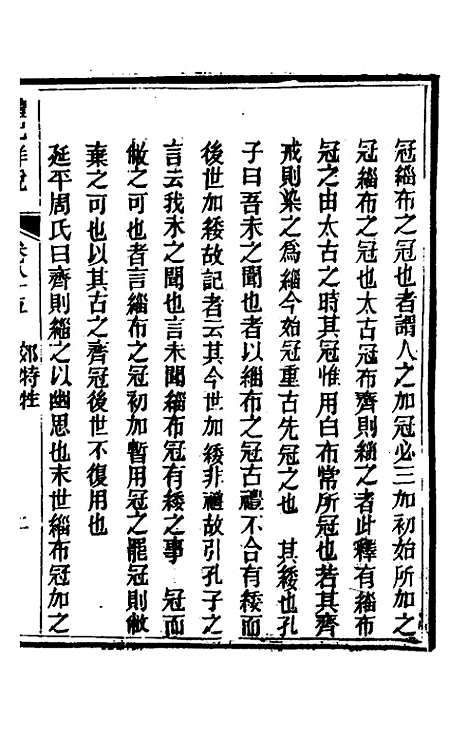 冠緇布之冠也者謂人之加冠必三加初始所加之
冠緇布之冠也太古冠布齊則緇之者此釋有緇布
冠之由太古之時其冠惟用白布常所冠也若其齊
戒則染之爲緇今始冠重古先冠之也　其緌也孔
子曰吾未之聞也者以緇布之冠古禮不合有緌而
後世加緌故記者云其今世加緌非禮故引孔子之
言云我未之聞也言未聞緇布冠有緌之事　冠而
敝之可也者言緇布之冠初加暫用冠之罷冠則敝
棄之可也以其古之齊冠後世不復用也
延平周氏曰齊則緇之以幽思也末世緇布冠加之
禮記詳說　卷八十五　郊特牲